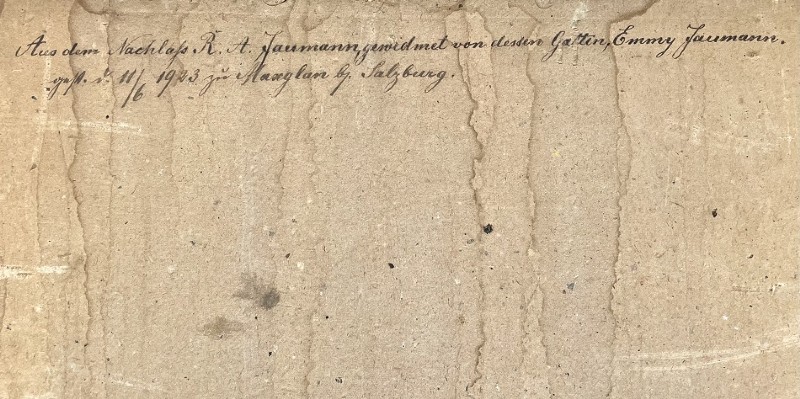 Aus dem Nachlaß R. A. Jaumann, gewidmet von dessen Gattin, Emmy Jaumann.
gest. d. 11/6 1923 zu Maxglan bj. Salzburg.